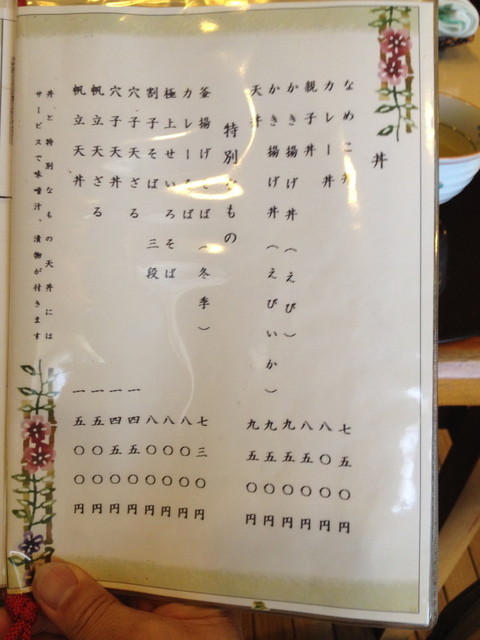 丼
なめこ丼 七五〇円
カレー丼 八〇〇円
親子丼 八五〇円
かき揚げ丼（えび） 九五〇円
かき揚げ丼（えびいか） 九五〇円
天丼 九五〇円
特別なもの
釜揚げそば（冬季） 七三〇円
カレーそば 八〇〇円
極上せいろそば 八〇〇円
割子そば 三段 八〇〇円
穴子天ざる 一四五〇円
穴子天丼 一四五〇円
帆立天ざる 一五〇〇円
帆立天丼 一五〇〇円
丼と特別なものの天丼には
サービスで味噌汁、漬物が付きます